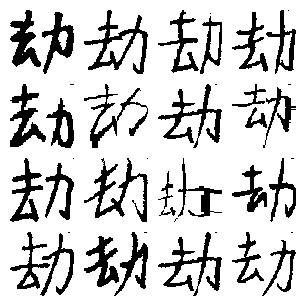 劫劫劫劫
劫劫劫劫
劫劫劫劫
劫劫劫劫